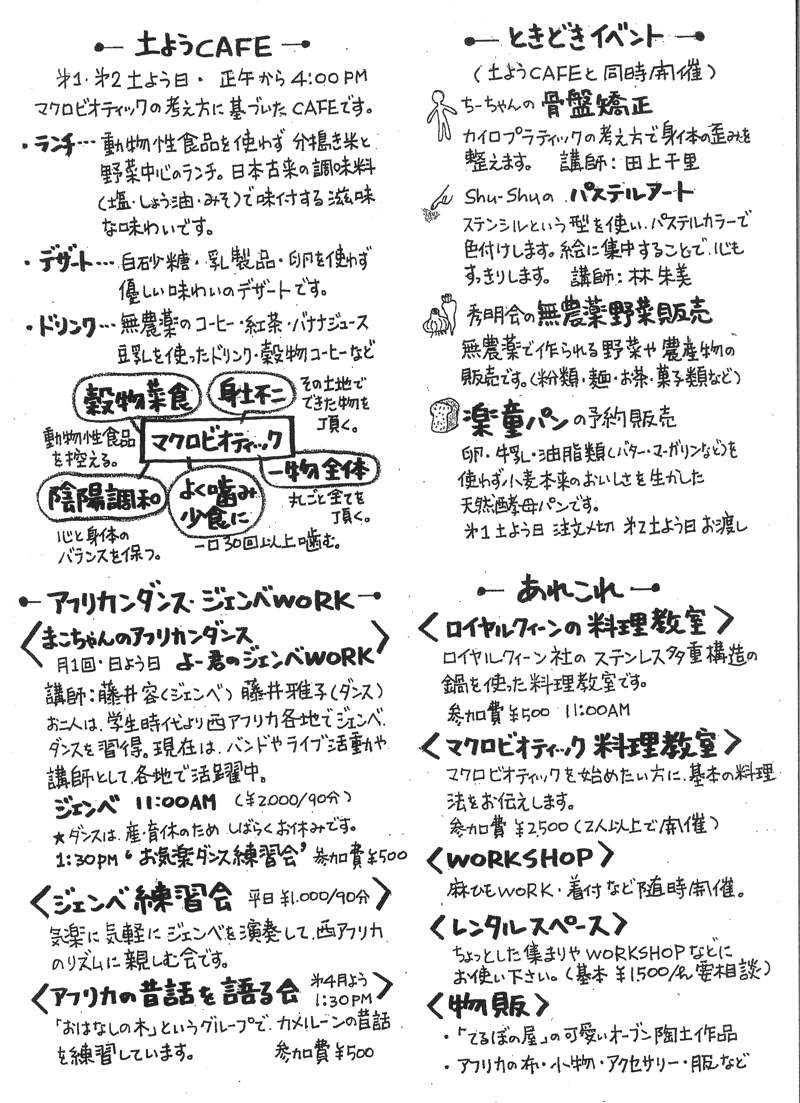 土ようCAFE
第1・第2土よう日・正午から4:00PM
マクロビオティックの考え方に基づいたCAFEです。
・ランチ…動物性食品を使わず 分搗き米と
野菜中心のランチ。日本古来の調味料
(塩・しょう油・みそ)で味付する滋味
な味わいです。
・デザート…白砂糖・乳製品・卵を使わず
優しい味わいのデザートです。
・ドリンク…無農薬のコーヒー・紅茶・バナナジュース
豆乳を使ったドリンク・穀物コーヒーなど
穀物菜食
身土不二
その土地で
できた物を
頂く。
動物性食品
を控える。
マクロビオティック
一物全体
丸ごと全てを
頂く。
陰陽調和
心と身体の
バランスを保つ。
よく噛み
少食に
一口30回以上噛む。
アフリカンダンス・ジェンベWORK
〈まこちゃんのアフリカンダンス
月1回・日よう日 よー君のジェンベWORK〉
講師:藤井容(ジェンベ) 藤井雅子(ダンス)
お二人は、学生時代より西アフリカ各地でジェンベ、
ダンスを習得。現在は、バンドやライブ活動や
講師として、各地で活躍中。
ジェンベ 11:00AM (¥2000/90分)
★ダンスは、産・育休のため しばらくお休みです。
1:30PM 'お気楽ダンス練習会' 参加費¥500
〈ジェンベ練習会 平日¥1.000/90分〉
気楽に気軽に ジェンベを演奏して、西アフリカ
のリズムに親しむ会です。
〈アフリカの昔話を語る会 第4月よう
1:30PM〉
「おはなしの木」というグループで、カメルーンの昔話
を練習しています。 参加費¥500
ときどきイベント
(土ようCAFEと同時開催)
ちーちゃんの 骨盤矯正
カイロプラティックの考え方で身体の歪みを
整えます。 講師:田上千里
Shu-Shuの パステルアート
ステンシルという型を使い、パステルカラーで
色付けします。絵に集中することで、心も
すっきりします。 講師:林 朱美
秀明会の無農薬野菜販売
無農薬で作られる野菜や農産物の
販売です。(粉類・麺・お茶・菓子類など)
楽童パンの予約販売
卵・牛乳・油脂類(バター・マーガリンなど)を
使わず小麦本来のおいしさを生かした
天然酵母パンです。
第1土よう日 注文〆切 第2土よう日 お渡し
あれこれ
〈ロイヤルクィーンの料理教室〉
ロイヤルクィーン社のステンレス多重構造の
鍋を使った料理教室です。
参加費¥500 11:00AM
〈マクロビオティック料理教室〉
マクロビオティックを始めたい方に、基本の料理
法をお伝えします。
参加費 ¥2,500(2人以上で開催)
〈WORKSHOP〉
麻ひもWORK・着付など随時開催。
〈レンタルスペース〉
ちょっとした集まりやWORKSHOPなどに
お使い下さい。(基本 ¥1500/h 要相談)
〈物販〉
・「てるぼの屋」の可愛いオーブン陶土作品
・アフリカの布・小物・アクセサリー・服など